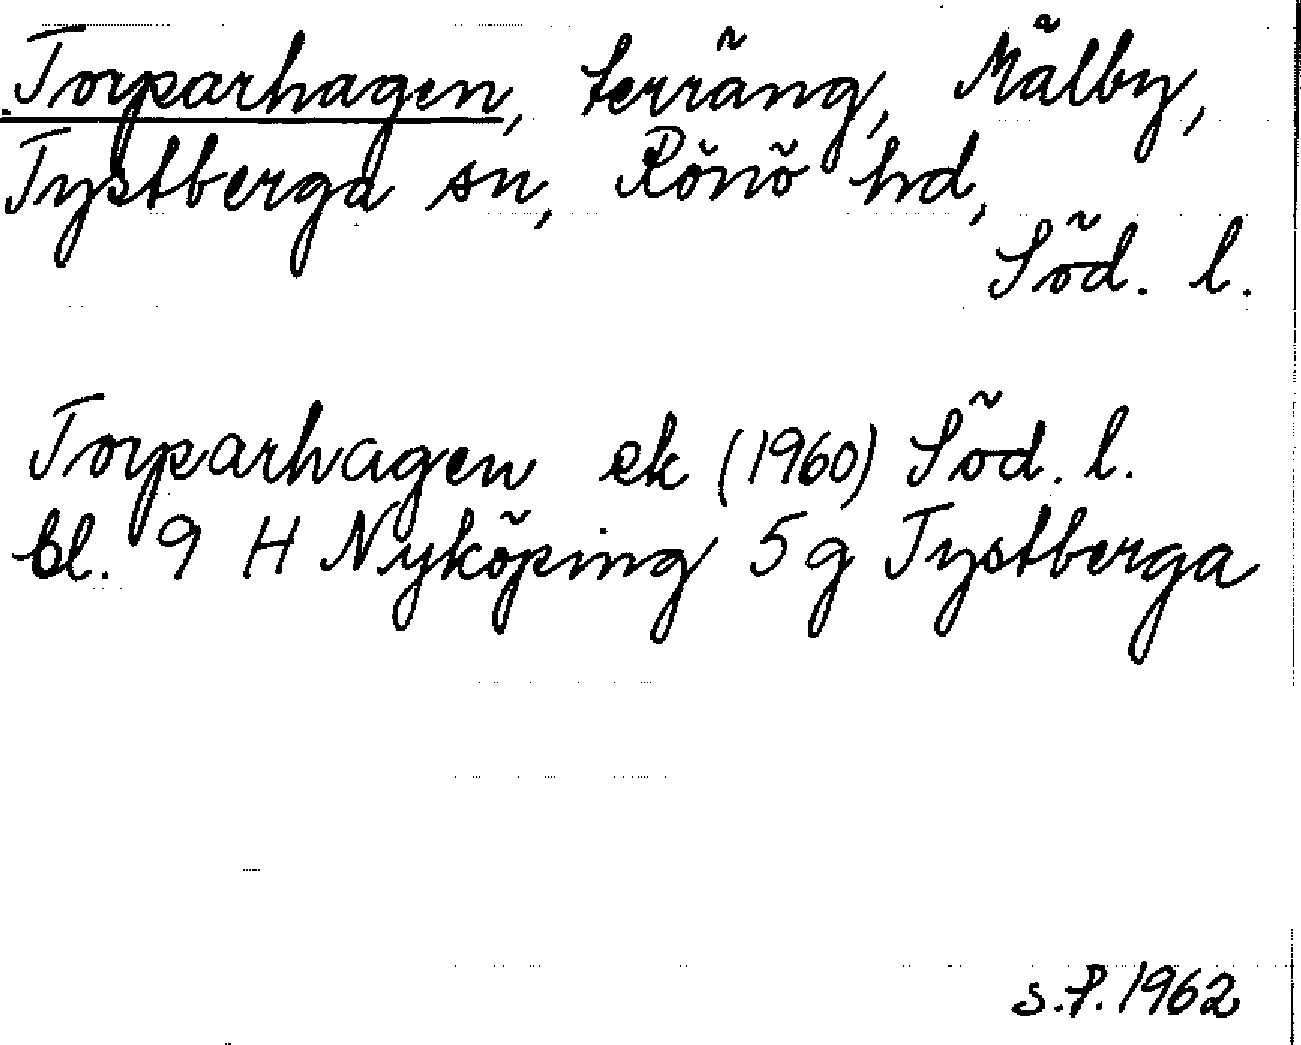 Torparhagen, terräng, Mälby,
Tystberga sn, Rönö hd,
Söd. l.
Torparhagen ek (1960) Söd. l.
bl. 9 H Nyköping 5 g Tystberga
s.P. 1962